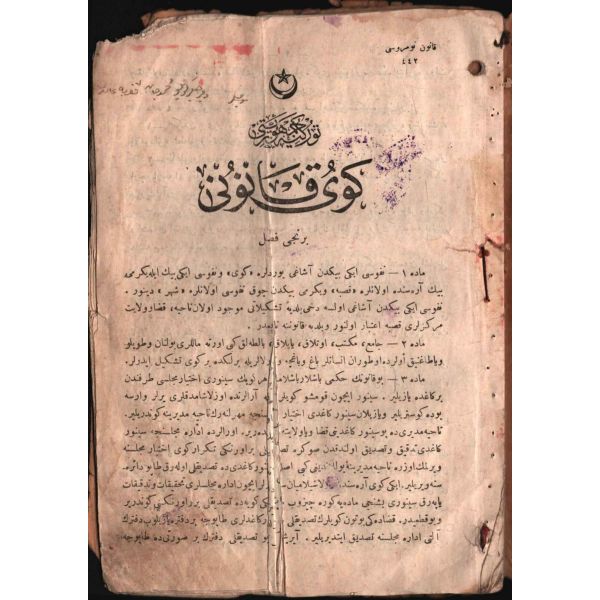 قانون نومروسی
٤٤٢
توركيه جمهوريتی
كوی قانونی
برنجی فصل
ماده ١ — نفوسی ایكی بیكدن آشاغی یوردلره «كوی» و نفوسی ایكی بیك ایله یكرمی
بیك آره‌سنده اولانلره «قصبه» و یكرمی بیكدن چوق نفوسی اولانلره «شهر» دینور.
نفوسی ایكی بیكدن آشاغی اولسه دخی بلدیه تشكیلاتی موجود اولان ناحیه، قضا و ولایت
مركزلری قصبه اعتبار اولنور و بلدیه قانوننه تابعدر.
ماده ٢ — جامع، مكتب، اوتلاق، یایلاق، بالطه‌لق كی اورته ماللری بولنان و طوپلو
ویا طاغنیق أولرده اوطوران انسانلر باغ و باغچه و تارلالریله برلكده بر كوی تشكیل ایدرلر.
ماده ٣ — بو قانونك حكمی باشلار باشلاماز هر كویك سینوری اختیار مجلسی طرفندن
بر كاغده یازیلیر. سینور ایچون قومشو كویلرله آرالرنده اولاشامدقلری یرلر وارسه
بوده كوستریلیر و یازیلان سینور كاغدی اختیار مجلسنجه مهرلنه‌رك ناحیه مدیرینه كوندریلیر.
ناحیه مدیری ده بو سینور كاغدینی قضا ویا ولایته كوندریر. اورالرده اداره مجلسنجه سینور
كاغدی تدقیق و تصدیق اولندقدن صوكره تصدیقلی بر اورنكی تكرار كوی اختیار مجلسنه
ویرلمك اوزره ناحیه مدیرینه یوللاندیغی كبی اصل سینور كاغدی ده تصدیقلی اوله‌رق طاپو دائره
سنه ویریلیر. ایكی كوی آره‌سنده اولاشلامیان یرلر ایچون اداره مجلسلری تحقیقات و تدقیقات
یاپه‌رق سینوری بشنجی ماده‌یه كوره چیزوب ایكی كویه ده تصدیقلی بر اورنكنی كوندریر
و بو قطعیدر. قضاده كی بوتون كویلرك تصدیقلی سینور كاغدلری طاپوجه بر دفتره یازیلوب دفترك
آلتی اداره مجلسنه تصدیق ایتدیریلیر. آیریجه بو تصدیقلی دفترك بر صورتی ده طاپوجه،